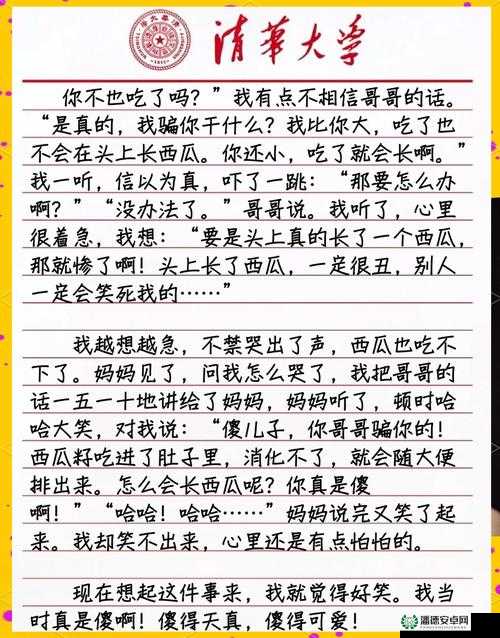 清华大学
你不也吃了吗？”我有点不相信哥哥的话。
“是真的，我骗你干什么？我比你大，吃了也
不会在头上长西瓜。你还小，吃了就会长啊。”
我一听，信以为真，吓了一跳：“那要怎么办
啊？”“没办法了。”哥哥说。我听了，心里
很着急，我想：“要是头上真的长了一个西瓜，
那就惨了啊！头上长了西瓜，一定很丑，别人
一定会笑死我的……”
我越想越急，不禁哭出了声，西瓜也吃不
下了。妈妈见了，问我怎么哭了，我把哥哥的
话一五一十地讲给了妈妈，妈妈听了，顿时哈
哈大笑，对我说：“傻儿子，你哥哥骗你的！
西瓜籽吃进了肚子里，消化不了，就会随大便
排出来。怎么会长西瓜呢？你真是傻
啊！”“哈哈！哈哈……”妈妈说完又笑了起
来。我却笑不出来，心里还是有点怕怕的。
现在想起这件事来，我就觉得好笑。我当
时真是傻啊！傻得天真，傻得可爱！
潘德安卓网